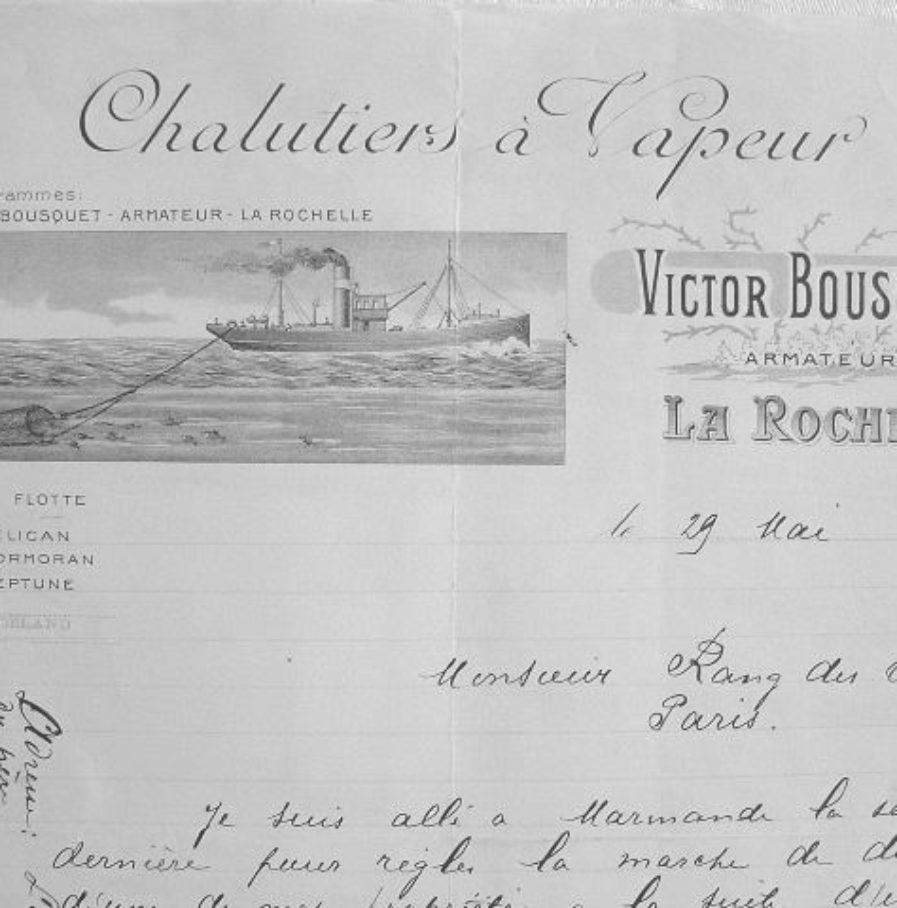 Chalutiers à Vapeur
rammes:
BOUSQUET - ARMATEUR - LA ROCHELLE
VICTOR BOUS
ARMATEUR
LA ROCHE
FLOTTE
ELICAN
ORMORAN
EPTUNE
OELAND
le 29 Mai
Monsieur Rang des
Paris.
Je suis allé a Marmande la se
dernière pour régler la marche de d
de mes propriétés a la suite d'u